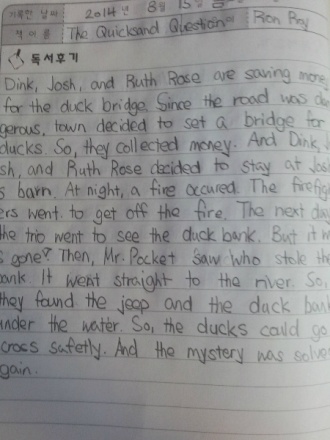 기록한 날짜 2014년 8월 15일
책 이름 The Quicksand Question Ron Roy
독서후기
Dink, Josh, and Ruth Rose are saving mone
for the duck bridge. Since the road was da
gerous, town decided to set a bridge for
ducks. So, they collected money. And Dink, J
sh, and Ruth Rose decided to stay at Jos
s barn. At night, a fire occured. The firefig
ers went to get off the fire. The next da
he trio went to see the duck bank. But it w
s gone? Then, Mr. Pocket saw who stole th
ank. It went straight to the river. So,
they found the jeep and the duck ban
under the water. So, the ducks could go
cross safetly. And the mystery was solve
gain.